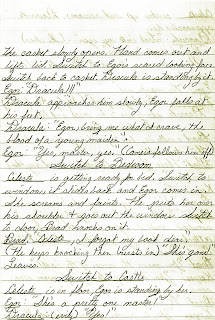 the casket slowly opens. Hand comes out and
lifts lid. Switch to Egor's scared looking face.
Switch back to casket. Dracula is standing by it.
Egor: "Dracula!!!"
Dracula approaches him slowly, Egor falls at
his feet.
Dracula: "Egor, bring me what I crave, the
blood of a young maiden."
Egor: "Yes, master, yes." (Camera follows him
Switch to Bedroom
Celeste is getting ready for bed. Switch to
window, it and Egor comes in.
She screams and faints. He puts her over
his shoulder & goes out the window. Switch
to door, Brad knocks on it.
Brad: "Celeste, I forgot my
(He keeps knocking then enters in) "She's gone!"
Leaves.
Switch to Castle
Celeste is on floor, Egor is standing by her.
Egor: "She's a pretty one master!"
Dracula: (evil) "Yes!"